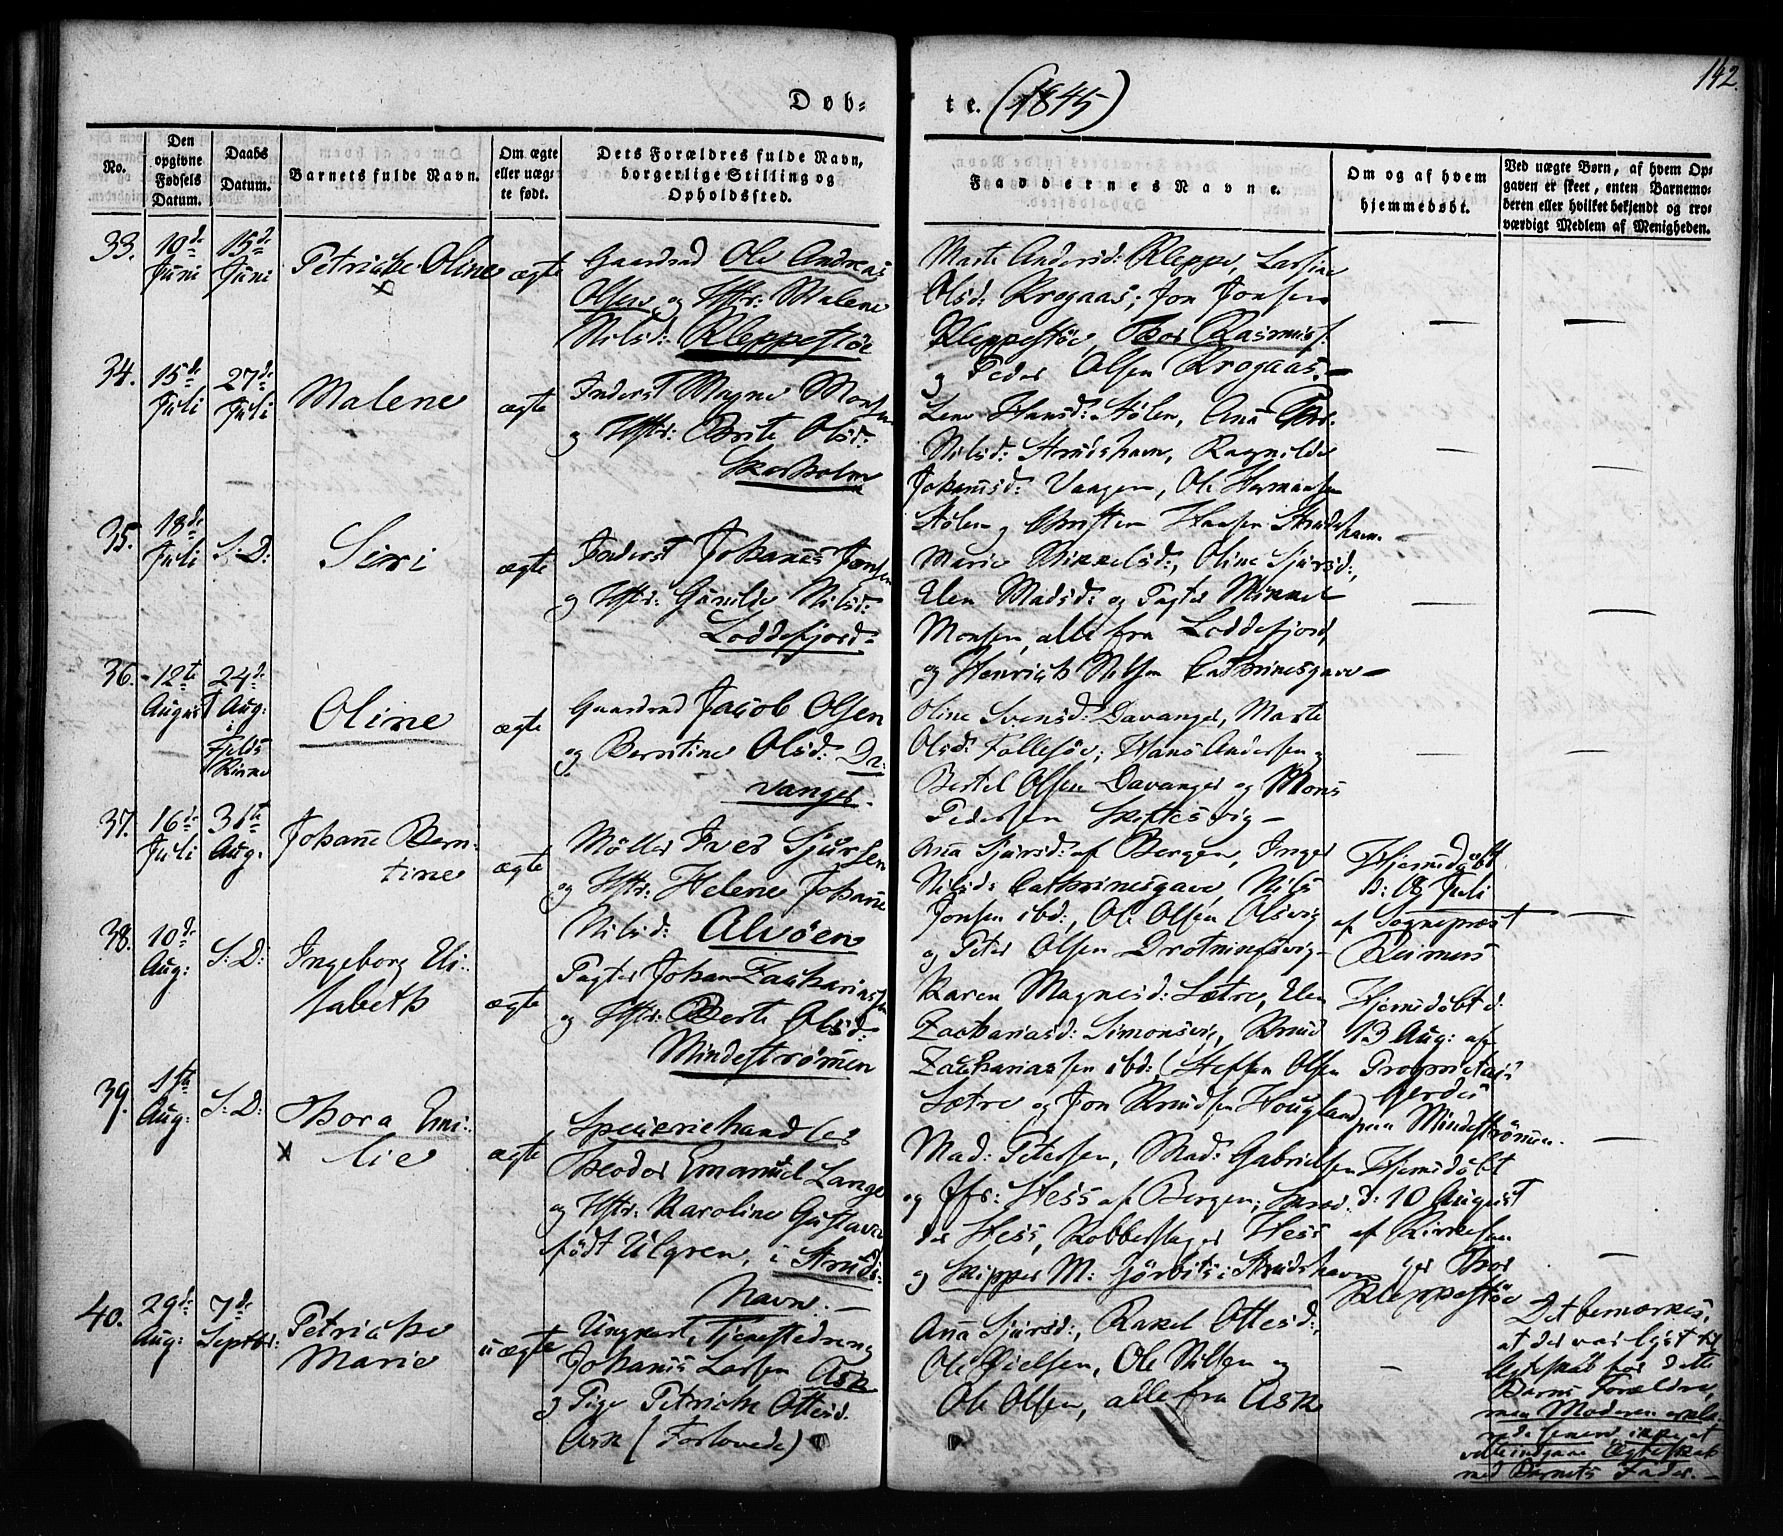 142.
Døb-
te. (1845)
No.
Den opgivne Fødsels Datum.
Daabs Datum.
Barnets fulde Navn.
Om ægte eller uægte født.
Dets Forældres fulde Navn, borgerlige Stilling og Opholdssted.
Faddernes Navne.
Om og af hvem hjemmedøbt.
Ved uægte Børn, af hvem Opgaven er skeet, enten Barnemoderen eller hvilket bekjendt og troværdigt Medlem af Menigheden.
33.
10de Juni
15de Juni
Petrikke Oline
ægte
Gaardmd Ole Andreas
Olsen og Hstr: Malene
Nilsd: Kleppestøe
Marte Andersd: Kleppe, Larsine
Olsd: Krogaas; Jon Jonsen
Kleppestøe, Thor Rasmuss.
og Peder Olsen Krogaas.
—
—
34.
15de Juli
27de Juli
Malene
ægte
Inderst Magne Monsen
og Hstr: Brite Olsd:
Skarholm
Lene Hansd: Stølen, Ana
Nilsd: Strudshavn, Ragnilde
Johannsd: Vaagen, Ole Hermansen
Stølen og Christen Hansen Strudshavn.
—
—
35.
18de Juli
S: D:
Siri
ægte
Inderst Johanes Jansen
og Hstr: Gunilde Nilsd:
Loddefjord
Marie Mikkelsd:, Oline Sjursd:,
Elen Madsd: og Pagter Mikkel
Monsen, alle fra Loddefjord
og Henrich Nilsen Cathrinesgave —
—
—
36.
12te August
24de Aug: i Fjelds Kirke
Oline
ægte
Gaardmd Jacob Olsen
og Berntine Olsd: Da-
vanger.
Oline Svensd: Davanger, Marte
Olsd: Follesøe; Hans Andersen og
Bertel Olsen Davanger og Mons
Pedersen Skiftesvig —
—
—
37.
16de Juli
31te Aug:
Johanne Bern-
tine
ægte
Møller Iver Sjursen
og Hstr: Helene Johanne
Nilsd: Alvøen
Ana Sjursd: af Bergen, Inger
Nilsd: Cathrinesgave, Nils
Jonsen ibd:, Ole Olsen Olsvig
og Peter Olsen Drotningsvig —
Hjemdøbt
d: 18 Juli
af Sognepræst
Reimers
—
38.
10de Aug:
S: D:
Ingeborg Eli-
sabeth
ægte
Pagter Johan Zachariassen
og Hstr: Berte Olsd:
Mindestrømmen
Karen Magnesd: Sætre, Elen
Zachariasd: Simonsvig, Knud
Zachariassen ibd: Steffen Olsen
Sætre og Jon Knudsen Hougland
Hjemdøbt d:
13 Aug: af
Proprietair
Gerdes
paa Mindestrømmen.
—
39.
1ste Aug:
S: D:
Thora Emi-
lie
ægte
Specerihandler
Theodor Emanuel Lange
og Hstr: Karoline Gustava
født Ulgren, i Struds-
havn. —
Mad: Petersen, Mad: Gabrielsen
og Jfr: Hess af Bergen;
Hess, Kobberslager Hess
og Skipper M: Gørbits i Strudshavn
Hjemdøbt
d: 10 August
af Kirkesan
ger Thor
Kleppestøe
—
40.
29de Aug:
7de Septbr:
Petrikke
Marie
uægte
Ungkarl, Tjenestedreng
Johanes Larsen Ask
og Pige Petrikke Ottesd.
Ask (Forlovede)
Ana Sjursd:, Rakel Ottesd:,
Ole Nielsen, Ole Nilsen og
Ole Olsen, alle fra Ask
—
Det bemærkes,
at der var lyst til
Egteskab for dette
Barns Forældre,
men Moderen erklæ-
rede senere ikke at
ville indgaae Ægteskab
med Barnets Fader. —